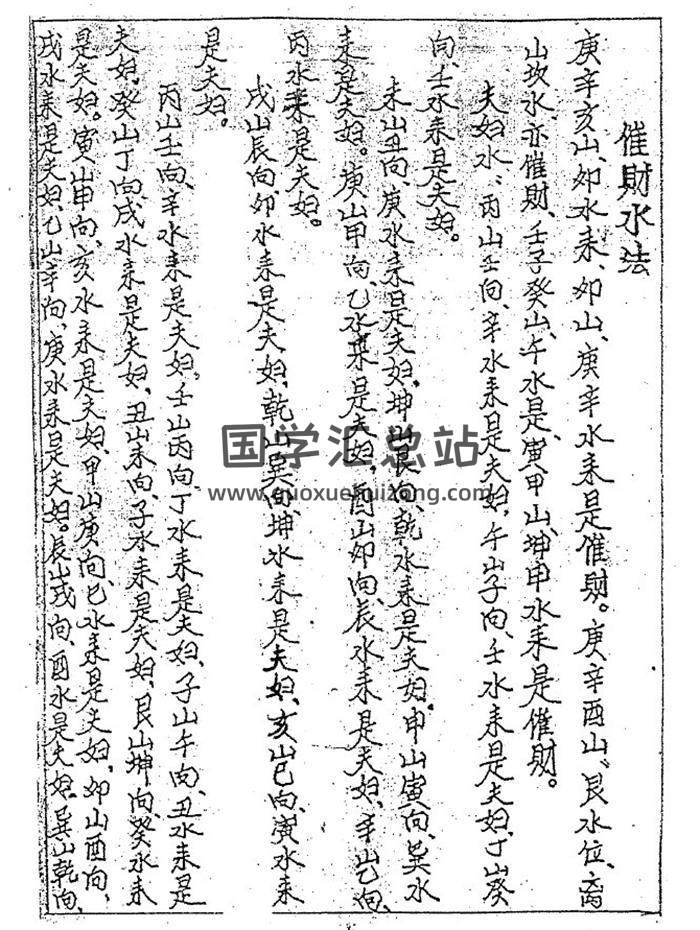 催财水法
庚辛亥山、卯水来、卯山、庚辛水来是催财。庚辛酉山、艮水位、离
山坎水、亦催财、壬子癸山、午水是、寅甲山、坤申水来是催财。
夫妇水、丙山壬向、辛水来是夫妇、午山子向、壬水来是夫妇、丁山癸
向、壬水来是夫妇。
未山丑向、庚水来是夫妇、坤山艮向、乾水来是夫妇、申山寅向、巽水
来是夫妇。庚山甲向、乙水来是夫妇、酉山卯向、辰水来是夫妇、辛山乙向、
丙水来是夫妇。
戌山辰向卯水来是夫妇、乾山巽向、坤水来是夫妇、亥山巳向、寅水来
是夫妇。
丙山壬向、辛水来是夫妇、壬山丙向、丁水来是夫妇、子山午向、丑水来是
夫妇、癸山丁向、戌水来是夫妇、丑山未向、子水来是夫妇、艮山坤向、癸水来
是夫妇。寅山申向、亥水来是夫妇、甲山庚向、巳水来是夫妇、卯山酉向、
戌水来是夫妇、乙山辛向、庚水来是夫妇。辰山戌向、酉水是夫妇、巽山乾向、
国学汇总站
www.guoxuehuizong.com